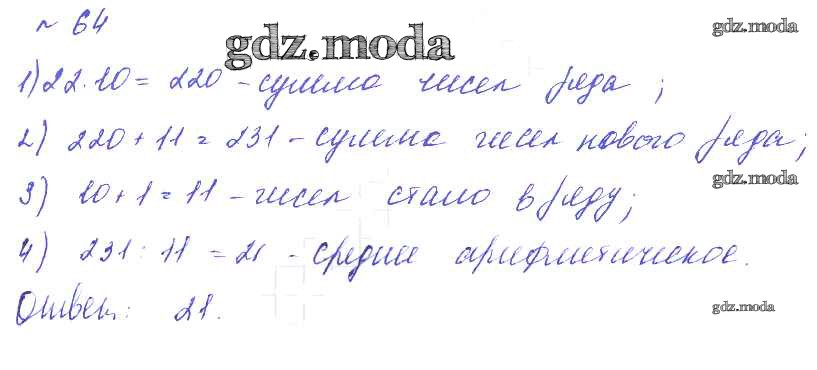 № 64
gdz.moda
gdz.moda
1) 22·10 = 220 – сумма чисел ряда;
2) 220 + 11 = 231 – сумма чисел нового ряда;
gdz.moda
3) 10 + 1 = 11 – чисел стало в ряду;
4) 231 : 11 = 21 – средние арифметическое.
Ответ: 21.
gdz.moda